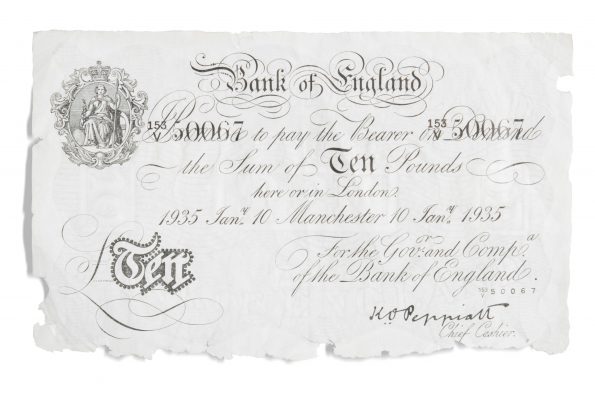 Bank of England
153
V 50067 to pay the Bearer on 153
V 50067
the Sum of Ten Pounds
here or in London.
1935 Jany. 10 Manchester 10 Jany. 1935
For the Govr. and Compa.
of the Bank of England.
£ Ten
153
V 50067
K O Peppiatt
Chief Cashier.